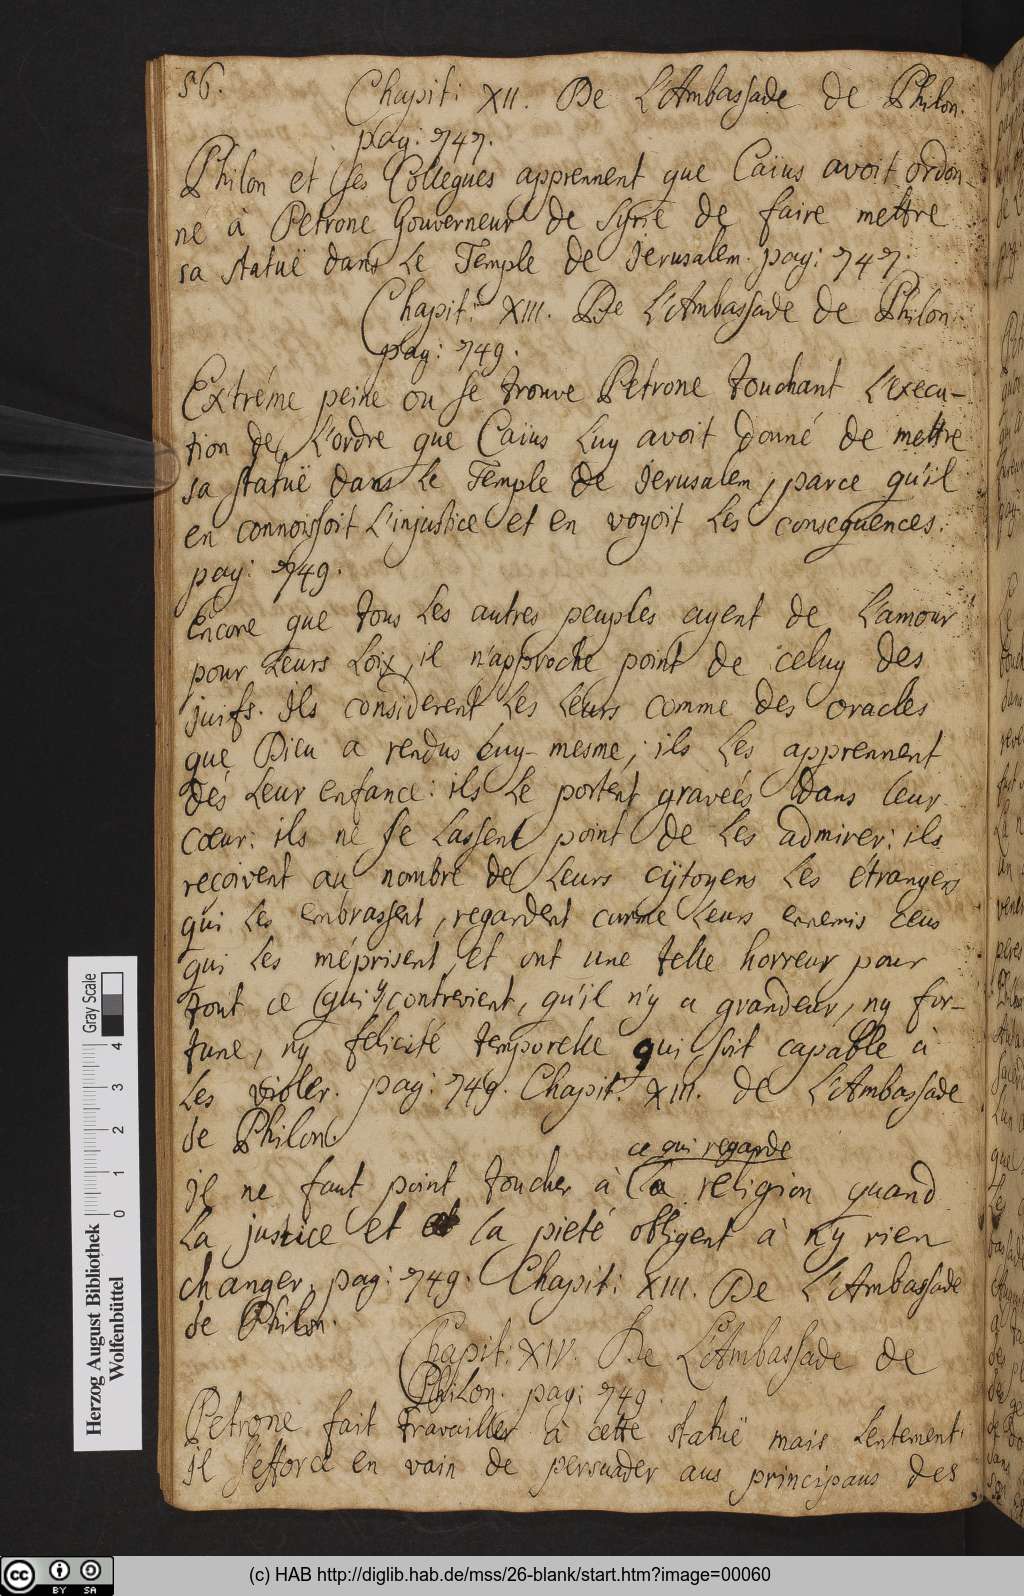 56.
Chapit: XII. De L'Ambassade de Philon.
pag: 747.
Philon et ses Collegues apprennent que Caïus avoit ordon-
ne à Petrone Gouverneur de Syrie de faire mettre
sa statuë dans Le Temple de Jerusalem. pag: 747.
Chapit: XIII. De L'Ambassade de Philon.
pag: 749.
Extréme peine ou se trouve Petrone touchant L'execu-
tion de L'ordre que Caïus Luy avoit donné de mettre
sa statuë dans Le Temple de Jerusalem, parce qu'il
en connoissoit L'injustice et en voyoit Les consequences.
pag: 749.
Encore que tous Les autres peuples ayent de L'amour
pour Leurs Loix, il n'approche point de celuy des
juifs. Ils considerent Les Leurs comme des oracles
que Dieu a rendus Luy-mesme; ils Les apprennent
dés Leur enfance: ils Le portent gravées dans Leur
cœur: ils ne se Lassent point de Les admirer: ils
reçoivent au nombre de Leurs cÿtoyens Les étrangers
qui Les embrassent, regardent comme Leurs ennemis ceus
qui Les méprisent, et ont une telle horreur pour
tout ce qui y contrevient, qu'il n'y a grandeur, ny for-
tune, ny felicité temporelle qui soit capable à
Les violer. pag: 749. Chapit: XIII. de L'Ambassade
de Philon.
ce qui regarde
Il ne faut point toucher à La religion quand
La justice et La pieté obligent à n'y rien
changer. pag: 749. Chapit: XIII. De L'Ambassade
de Philon.
Chapit: XIV. De L'Ambassade de
Philon. pag: 749.
Petrone fait travailler à cette statuë mais Lentement.
Il s'efforce en vain de persuader aus principaus des
Gray Scale
0 1 2 3 4
Herzog August Bibliothek
Wolfenbüttel
cc BY SA
(c) HAB http://diglib.hab.de/mss/26-blank/start.htm?image=00060